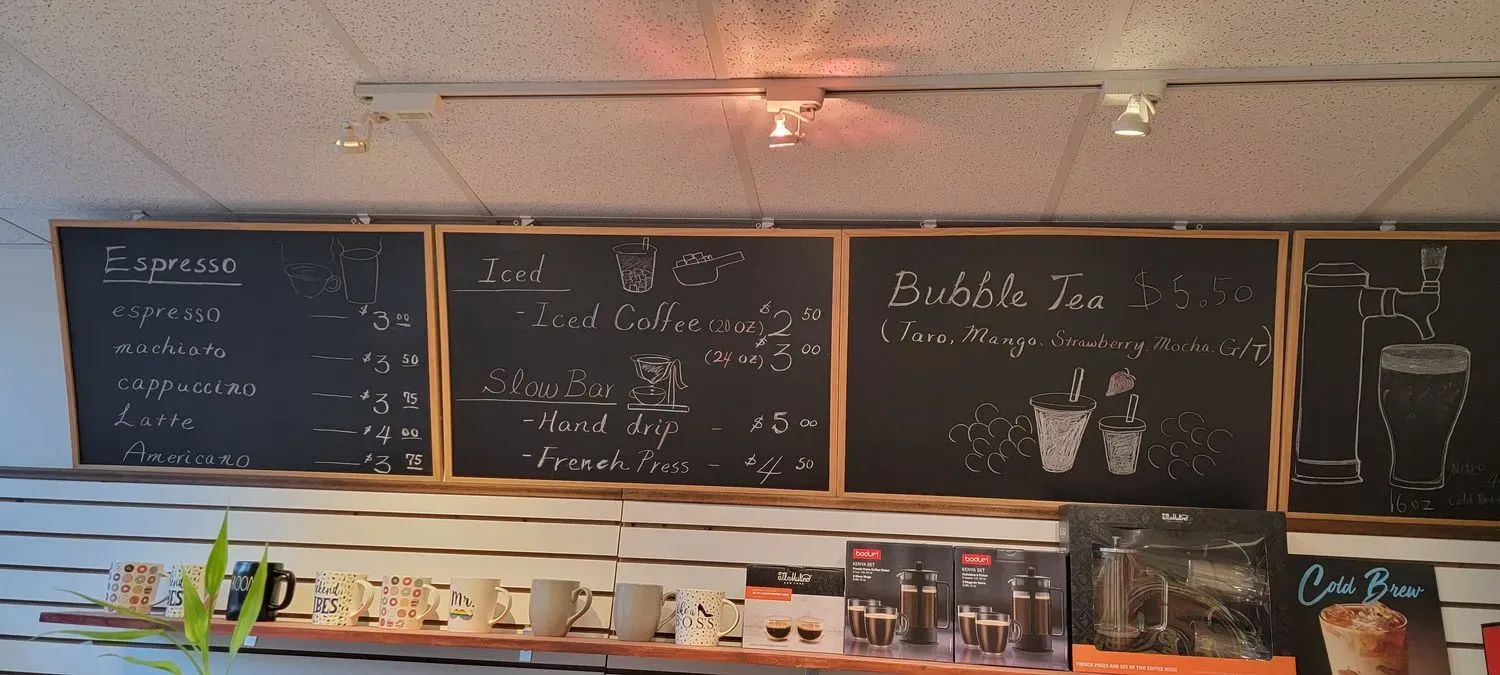 Espresso
espresso — $3 00
machiato — $3 50
cappuccino — $3 75
Latte — $4 00
Americano — $3 75
Iced
-Iced Coffee (20 oz) $2 50
(24 oz) $3 00
Slow Bar
-Hand drip - $5 00
-French Press - $4 50
Bubble Tea $5.50
(Taro, Mango, Strawberry, Mocha, G/T)
Nitro
16oz Cold
Mr.
BOSS
bodum
KENYA SET
bodum
KENYA SET
FRENCH PRESS AND SET OF TWO COFFEE MUGS
Cold Brew